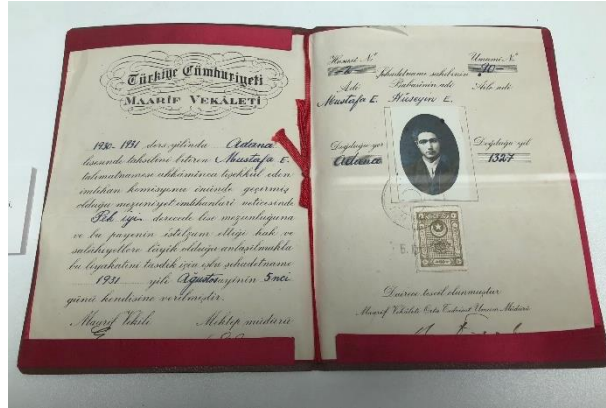 Türkiye Cümhuriyeti
MAARİF VEKÂLETİ
1930-1931 ders yılında Adana
lisesinde tahsilini bitiren Mustafa E.
talimatnamesi ahkâmınca teşekkül eden
imtihan komisyonu önünde geçirmiş
olduğu mezuniyet imtihanları neticesinde
Pek iyi derecede lise mezunluğuna
ve bu payenin istilzam ettiği hak ve
salâhiyetlere lâyik olduğu anlaşılmakla
bu liyakatini tasdik için işbu şehadetname
1931 yılı Ağustos ayinin 5nci
günü kendisine verilmiştir.
Maarif Vekili Mektep müdürü
Hususî No Umumî No
Şehadetname sahibinin
Adı Babasinin adi Aile adi
Mustafa E. Hüseyin E.
Doğduğu yer Doğduğu yıl
Adana 1327
Dairece tescil olunmuştur
Maarif Vekâleti Orta Tedrisat Umum Müdürü